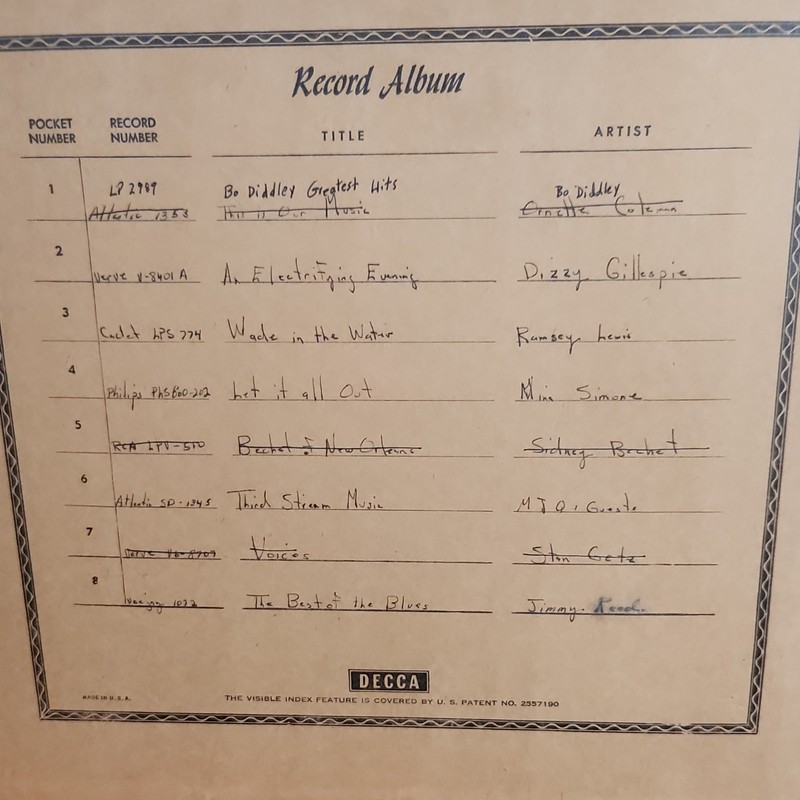 Record Album
POCKET NUMBER RECORD NUMBER TITLE ARTIST
1 LP 2989 Bo Diddley Greatest Hits Bo Diddley
Atlantic 1353 This is Our Music Ornette Coleman
2 Verve V-8401 A An Electrifying Evening Dizzy Gillespie
3 Cadet LPS 774 Wade in the Water Ramsey Lewis
4 Philips PHS 600-202 Let it all Out Nina Simone
5 RCA LPV-510 Bechet of New Orleans Sidney Bechet
6 Atlantic SD-1345 Third Stream Music MJQ & Guests
7 Verve V6-8707 Voices Stan Getz
8 Veejay 1072 The Best of the Blues Jimmy Reed
DECCA
MADE IN U.S.A. THE VISIBLE INDEX FEATURE IS COVERED BY U. S. PATENT NO. 2557190